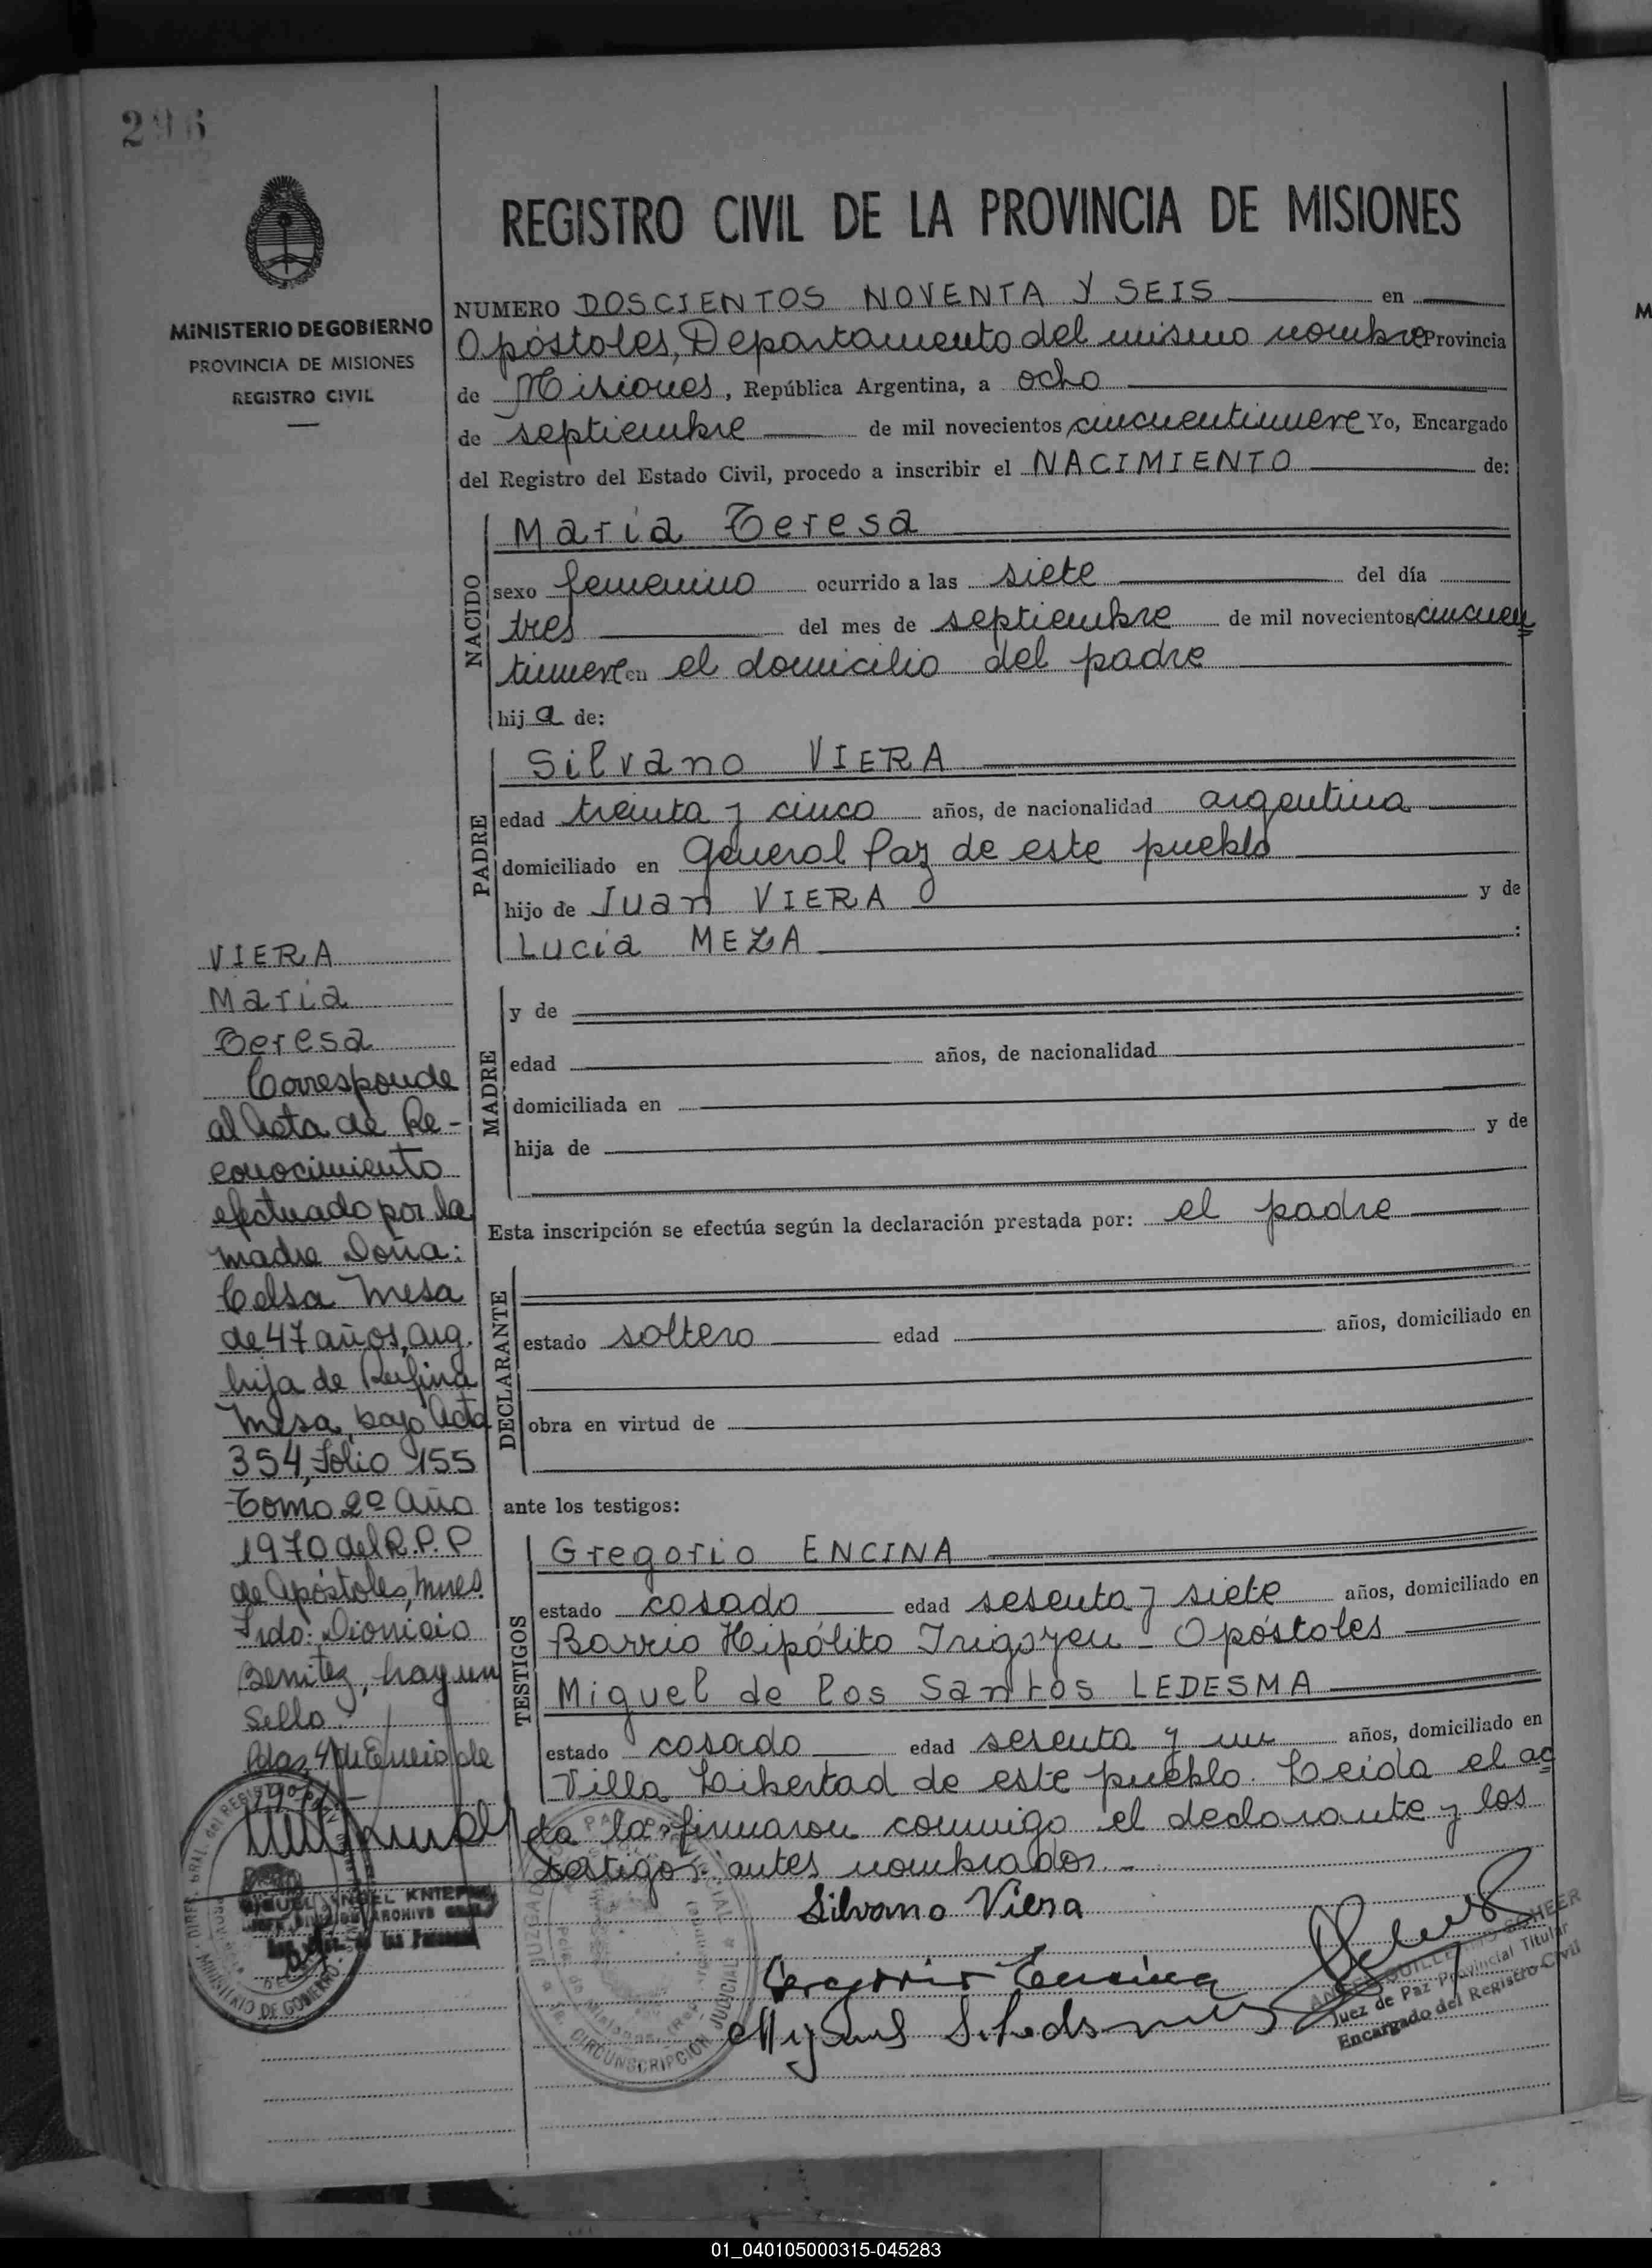 296
MINISTERIO DE GOBIERNO
PROVINCIA DE MISIONES
REGISTRO CIVIL
REGISTRO CIVIL DE LA PROVINCIA DE MISIONES
NUMERO DOSCIENTOS NOVENTA Y SEIS en
Apóstoles, Departamento del mismo nombre Provincia
de Misiones, República Argentina, a ocho
de septiembre de mil novecientos cincuentinueve Yo, Encargado
del Registro del Estado Civil, procedo a inscribir el NACIMIENTO de:
NACIDO
María Teresa
sexo femenino ocurrido a las siete del día
tres del mes de septiembre de mil novecientos cincuen
tinueve en el domicilio del padre
hija de:
PADRE
Silvano VIERA
edad treinta y cinco años, de nacionalidad argentina
domiciliado en General Paz de este pueblo
hijo de Juan VIERA y de
Lucía MEZA :
MADRE
y de
edad años, de nacionalidad
domiciliada en
hija de y de
Esta inscripción se efectúa según la declaración prestada por: el padre
DECLARANTE
estado soltero edad años, domiciliado en
obra en virtud de
ante los testigos:
TESTIGOS
Gregorio ENCINA
estado casado edad sesenta y siete años, domiciliado en
Barrio Hipólito Irigoyen - Apóstoles
Miguel de los Santos LEDESMA
estado casado edad sesenta y un años, domiciliado en
Villa Libertad de este pueblo. Leída el ac
ta la firmaron conmigo el declarante y los
testigos antes nombrados.-
Silvano Viera
Gregorio Encina
Miguel S. Ledesma
GUILLERMO SCHEER
Juez de Paz Provincial Titular
Encargado del Registro Civil
VIERA
María
Teresa
Corresponde
al Acta de Re-
conocimiento
efectuado por la
madre Doña:
Celsa Mesa
de 47 años, arg.
hija de Rufina
Mesa, bajo Acta
354, Folio 155
Tomo 2º Año
1970 del R.P.P
de Apóstoles, Mnes.
Fdo: Dionicio
Benitez, hay un
Sello.
Pdas, 4 de Enero de
MIGUEL ANGEL KNIEPP
JEFE DIVISION ARCHIVO GRAL.
MINISTERIO DE GOBIERNO
CIRCUNSCRIPCION JUDICIAL
01_040105000315-045283